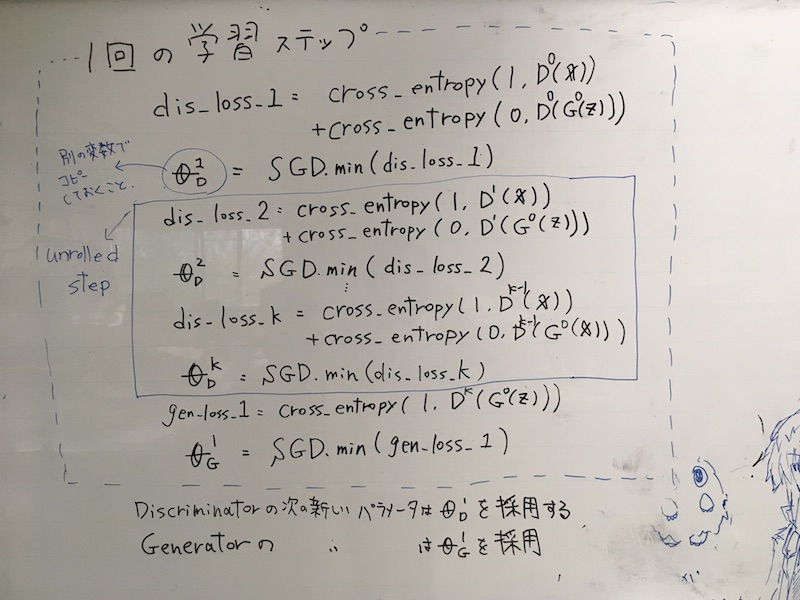 1回の学習ステップ
dis_loss_1 = cross_entropy(1, D⁰(x))
+cross_entropy(0, D⁰(G⁰(z)))
別の変数で
コピー
しておくこと。
θ_D^1 = SGD.min(dis_loss_1)
unrolled
step
dis_loss_2 = cross_entropy(1, D¹(x))
+cross_entropy(0, D¹(G⁰(z)))
θ_D^2 = SGD.min(dis_loss_2)
⋮
dis_loss_k = cross_entropy(1, D^{k-1}(x))
+cross_entropy(0, D^{k-1}(G⁰(x)))
θ_D^k = SGD.min(dis_loss_k)
gen_loss_1 = cross_entropy(1, D^k(G⁰(z)))
θ_G^1 = SGD.min(gen_loss_1)
Discriminatorの次の新しいパラメータはθ_D^1を採用する
Generatorの 〃 はθ_G^1を採用